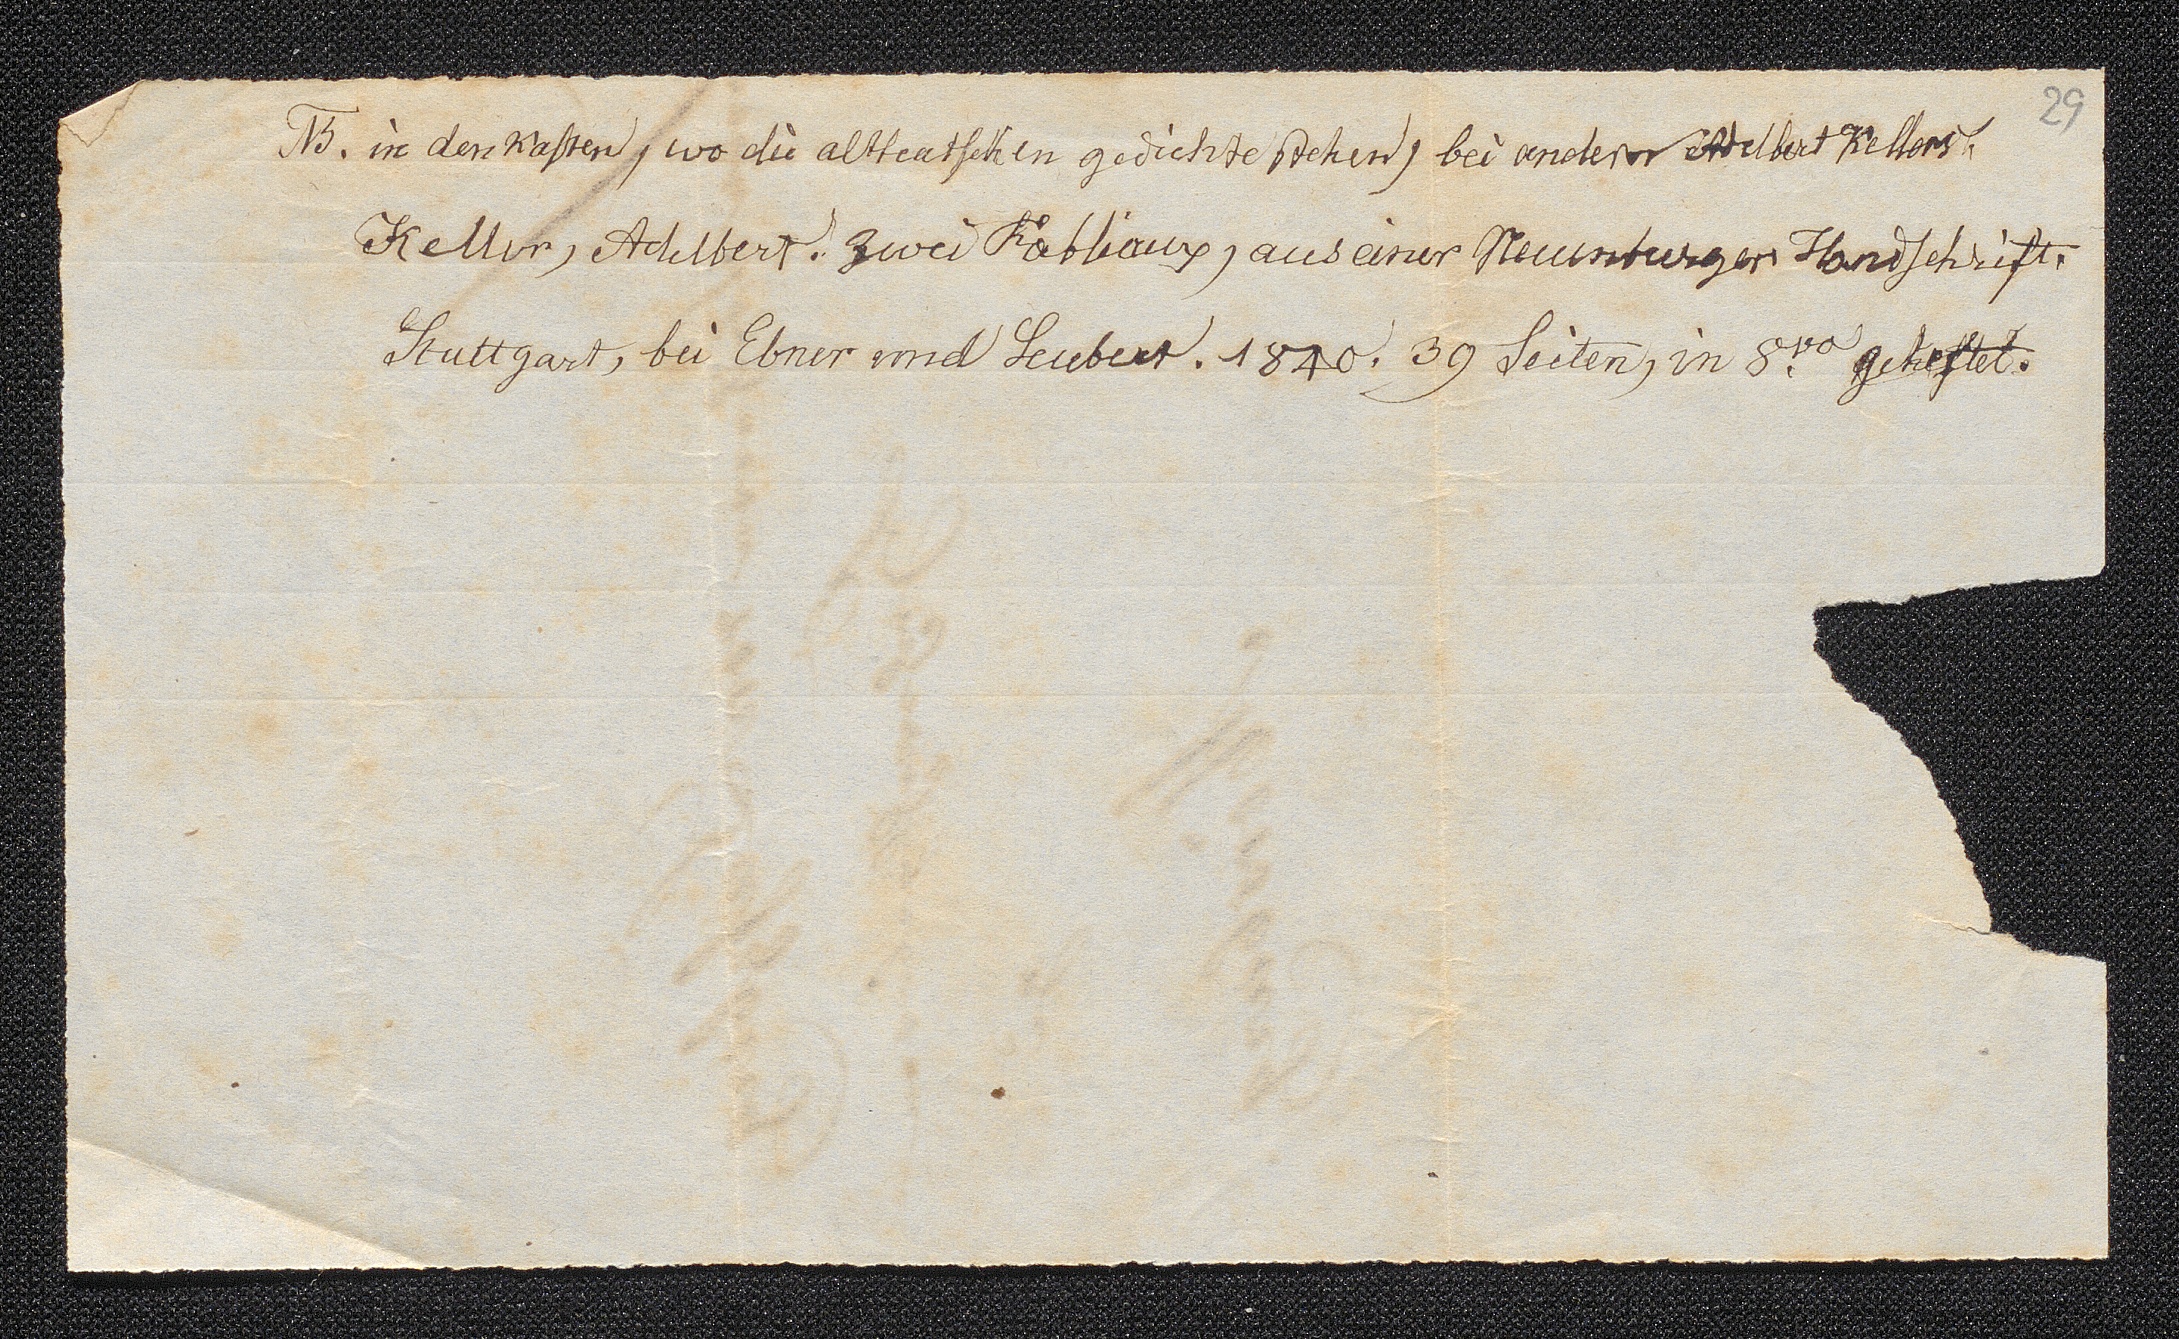 29
NB. in den Kasten, wo die altteutschen gedichte stehen, bei andern Adelbert Kellers.
Keller, Adelbert. Zwei Fabliaux, aus einer Neuenburger Handschrift.
Stuttgart, bei Ebner und Seubert. 1840. 39 Seiten, in 8.vo geheftet.